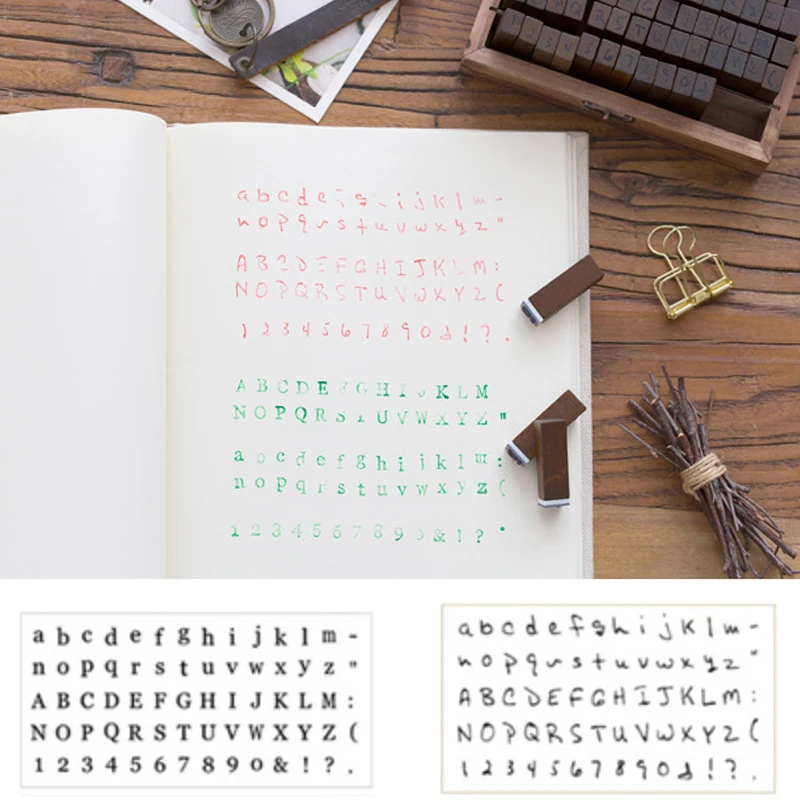 a b c d e f g h i j k l m -
n o p q r s t u v w x y z "
A B C D E F G H I J K L M :
N O P Q R S T U V W X Y Z (
1 2 3 4 5 6 7 8 9 0 & ! ? .
A B C D E F G H I J K L M
N O P Q R S T U V W X Y Z "
a b c d e f g h i j k l m :
n o p q r s t u v w x y z (
1 2 3 4 5 6 7 8 9 0 & ! ? .
a b c d e f g h i j k l m -
n o p q r s t u v w x y z "
A B C D E F G H I J K L M :
N O P Q R S T U V W X Y Z (
1 2 3 4 5 6 7 8 9 0 & ! ? .
a b c d e f g h i j k l m -
n o p q r s t u v w x y z "
A B C D E F G H I J K L M :
N O P Q R S T U V W X Y Z (
1 2 3 4 5 6 7 8 9 0 & ! ? .